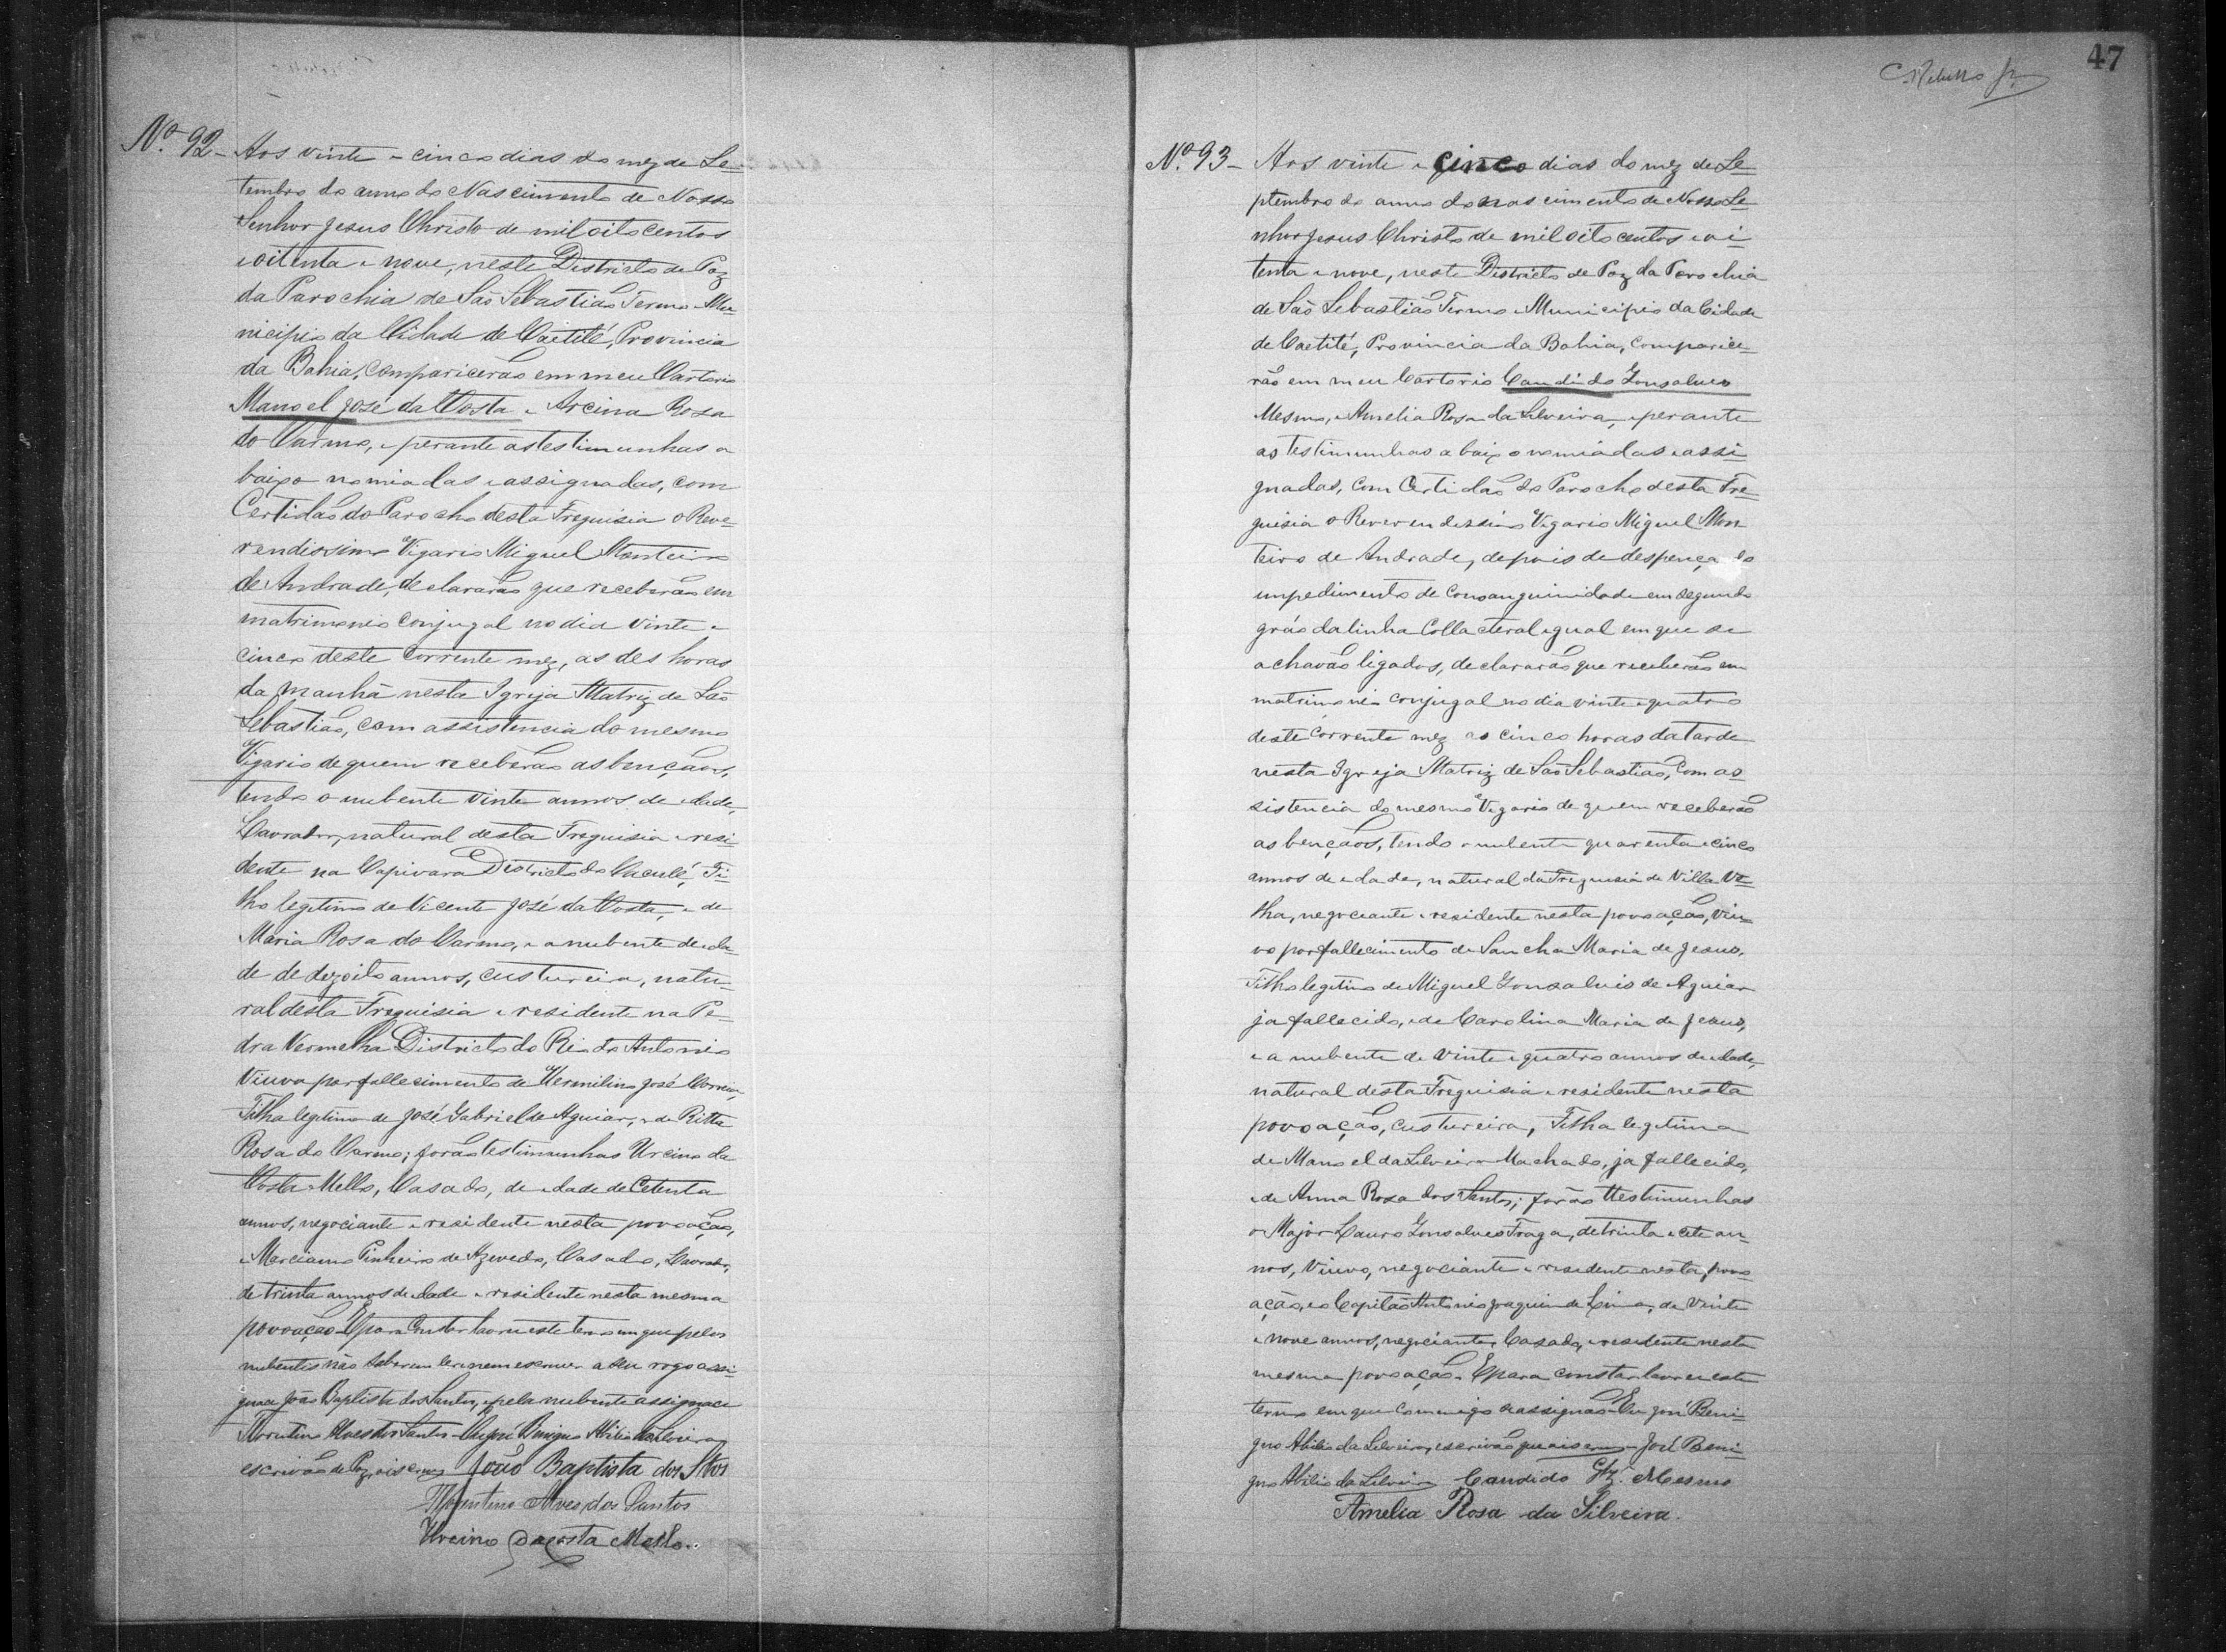 Nº 92 - Aos vinte e cinco dias do mez de Se-
tembro do anno do Nascimento de Nosso
Senhor Jesus Christo de mil oito centos
e oitenta e nove, neste Districto de Paz
da Parochia de São Sebastião Termo e Mu-
nicipio da Cidade de Caetité, Provincia
da Bahia, comparicerão em meu Cartorio
Manoel José da Costa e Arcina Rosa
do Carmo, e perante as testimunhas a
baixo nomiadas e assignadas, com
Certidão do Parocho desta Freguisia o Reve-
rendissimo Vigario Miguel Monteiro
de Andrade, declararão que receberão em
matrimonio conjugal no dia vinte e
cinco deste corrente mez, as des horas
da manhã nesta Igreja Matriz de São
Sebastião, com assistencia do mesmo
Vigario de quem receberão as bençãos,
tendo o nubente vinte annos de idade,
Lavrador, natural desta Freguisia e resi-
dente na Capivara Districto do Caculé, Fi-
lho legitimo de Vicente José da Costa, e de
Maria Rosa do Carmo, e a nubente de ida-
de de dezoito annos, custureira, natu-
ral desta Freguisia e residente na Pe-
dra Vermelha Districto do Rio do Antonio
Viuva por fallecimento de Hermilino José Correia,
Filha legitima de José Gabriel de Aguiar, e de Ritta
Rosa do Carmo; forão testimunhas Urcino da
Costa e Mello, Casado, de idade de Cetenta
annos, negociante e residente nesta povoação,
e Marciano Pinheiro de Azevedo, Casado, Lavrador,
de trinta annos de idade e residente nesta mesma
povoação. E para constar lavrei este termo em que pelos
nubentes não saberem ler e nem escrever a seu rogo assi-
gna João Baptista dos Santos, e pela nubente assigna
Florentino Alves dos Santos. Eu José Benigno Abilio da Silveira
escrivão de Paz, o iscrevy João Baptista dos Stos
Florentino Alves dos Santos
Urcino Dacosta Mello.
47
Nº 93 - Aos vinte e cinco dias do mez de Se-
ptembro do anno do nascimento de Nosso Se-
nhor Jesus Christo de mil oito centos e oi-
tenta e nove, neste Districto de Paz da Parochia
de São Sebastião Termo e Municipio da Cidade
de Caetité, Provincia da Bahia, comparice-
rão em meu Cartorio Candido Gonsalves
Mesmo, e Amelia Rosa da Silveira, e perante
as testimunhas a baixo nomiadas e assi-
gnadas, com Certidão do Parocho desta Fre-
guisia o Reverendissimo Vigario Miguel Mon-
teiro de Andrade, depois de despença do
impedimento de consanguinidade em segundo
gráo da linha Collacteral igual em que se
achavão ligados, declararão que receberão em
matrimonio conjugal no dia vinte e quatro
deste corrente mez as cinco horas da tarde
nesta Igreja Matriz de São Sebastião, com as-
sistencia do mesmo Vigario de quem receberão
as bençãos, tendo o nubente quarenta e cinco
annos de idade, natural da Freguisia de Villa Ve-
lha, negociante e residente nesta povoação, Viu-
vo por fallecimento de Sancha Maria de Jesus,
Filho legitimo de Miguel Gonsalvis de Aguiar
ja fallecido, e de Carolina Maria de Jesus,
e a nubente de vinte e quatro annos de idade,
natural desta Freguisia e residente nesta
povoação, custureira, Filha legitima
de Manoel da Silveira Machado, ja fallecido,
e de Anna Rosa dos Santos; forão testimunhas
o Major Lauro Gonsalves Fraga, de trinta e cete an-
nos, Viuvo, negociante e residente nesta povo-
ação, e o Capitão Antonio Joaquim de Lima, de vinte
e nove annos, negociante, Casado, e residente nesta
mesma povoação. E para constar lavrei este
termo em que commigo assignão. Eu José Beni-
gno Abilio da Silveira, escrivão que o iscrevy - José Beni-
gno Abilio da Silveira Candido Glz. Mesmo
Amelia Rosa da Silveira.